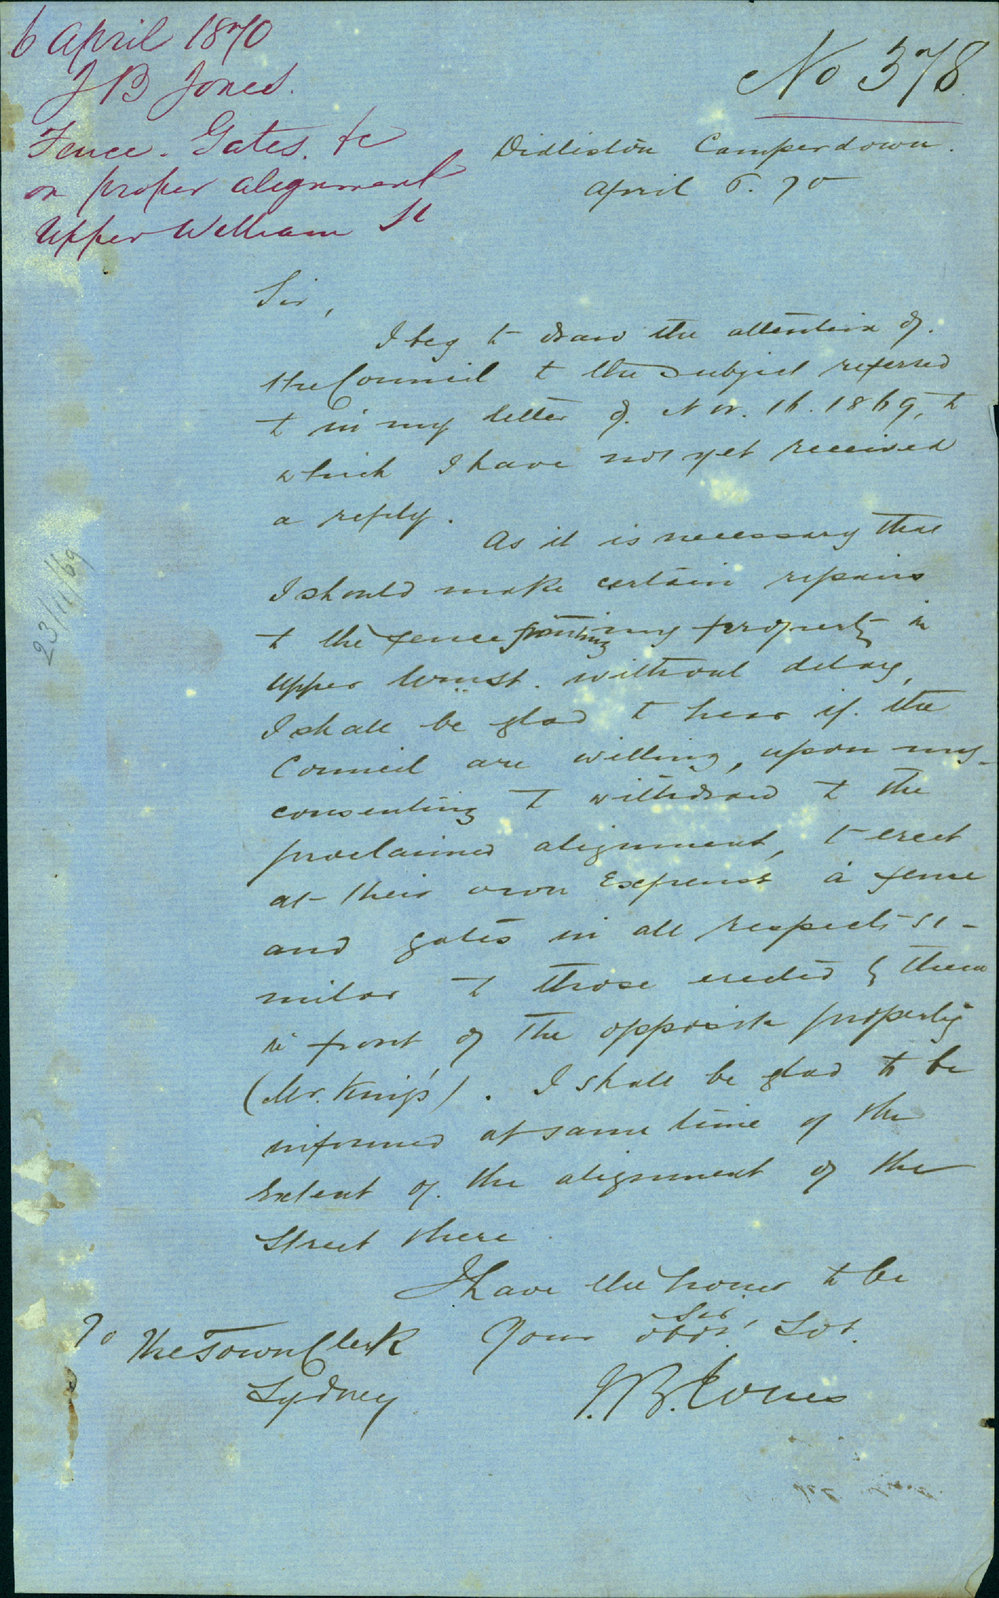 6 April 1870
J B Jones.
Fence. Gates. &c
on proper alignment
Upper William St
No 378.
Camperdown.
April 6. 70
Sir,
I beg to draw the attention of.
the Council to the subject referred
to in my letter of. Nov. 16. 1869, to
which I have not yet received
a reply.
As it is necessary that
I should make certain repairs
to the fence fronting my property in
Upper Wm St. without delay,
I shall be glad to hear if. the
Council are willing, upon my
consenting to withdraw to the
proclaimed alignment, to erect
at their own expense a fence
and gates in all respects si-
milar to those erected by them
in front of the opposite property
(Mr. King's). I shall be glad to be
informed at same time of the
extent of. the alignment of the
Street there.
I have the honor to be
Sir,
Your obdt Svt.
J. B. Jones
To The Town Clerk
Sydney.
23/11/69